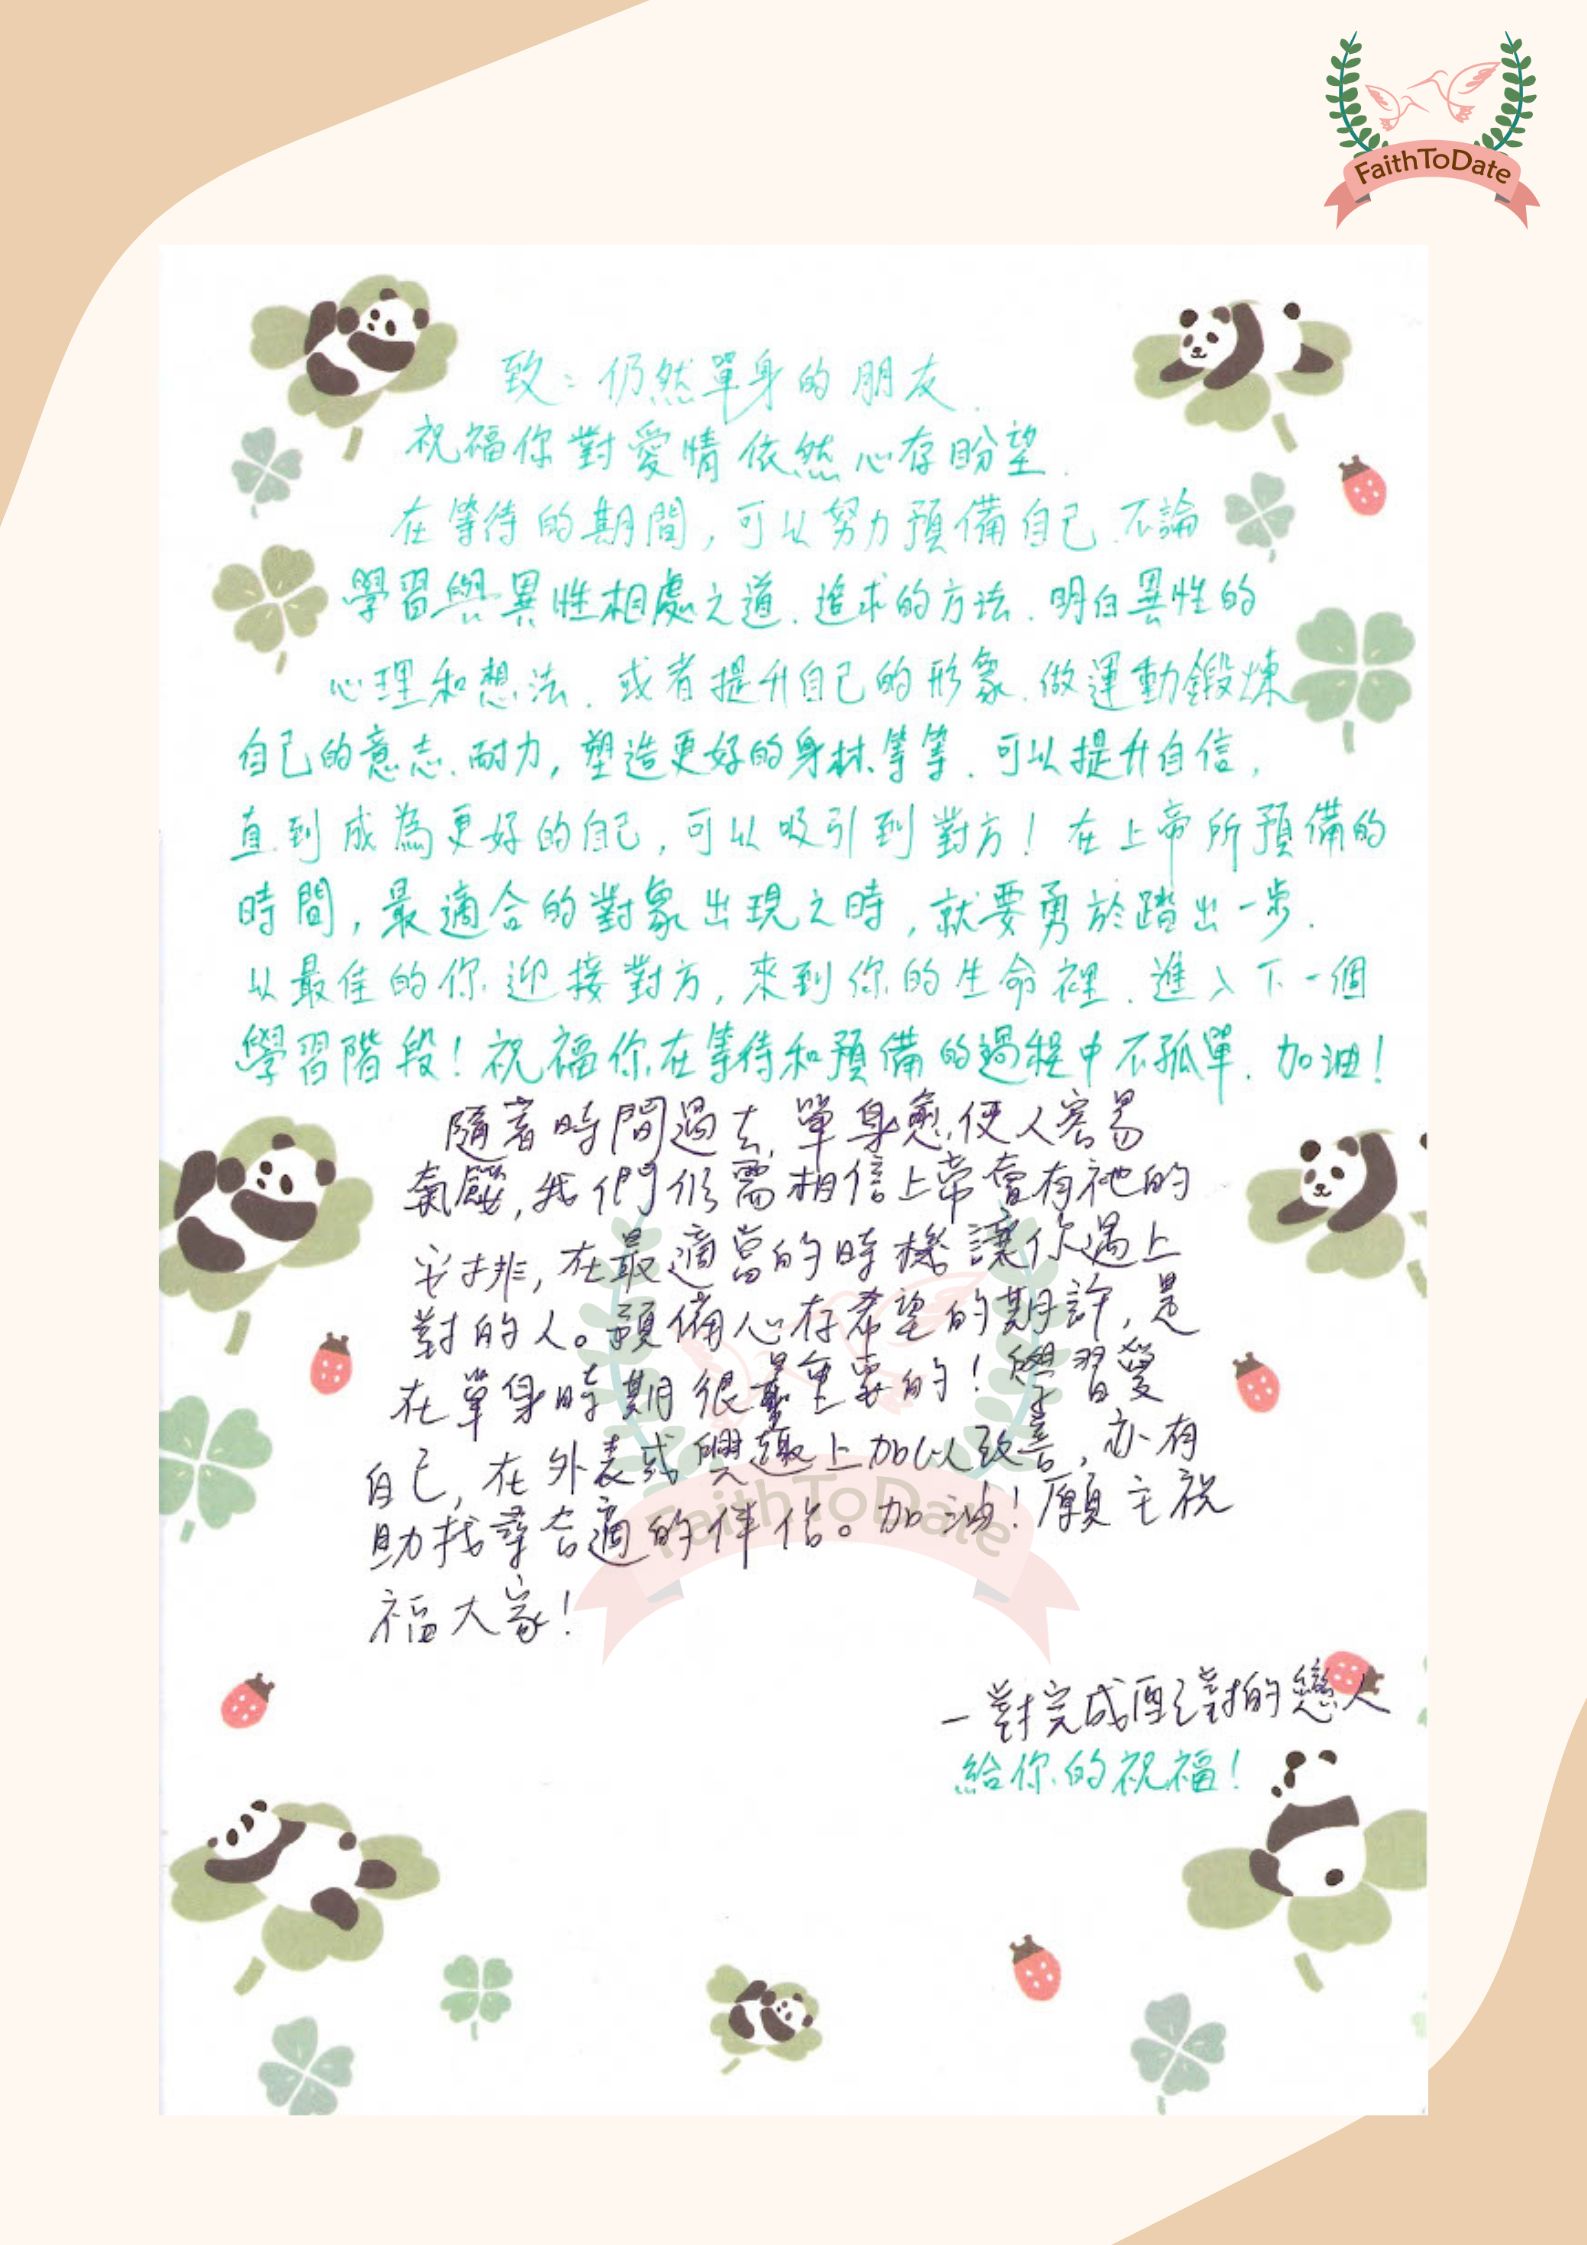 FaithToDate
致：仍然單身的朋友.
祝福你對愛情依然心存盼望.
在等待的期間,可以努力預備自己.不論
學習與異性相處之道.追求的方法.明白異性的
心理和想法.或者提升自己的形象.做運動鍛煉
自己的意志.耐力,塑造更好的身材.等等.可以提升自信,
直到成為更好的自己,可以吸引到對方!在上帝所預備的
時間,最適合的對象出現之時,就要勇於踏出一步.
以最佳的你迎接對方,來到你的生命裡.進入下一個
學習階段!祝福你在等待和預備的過程中不孤單.加油!
隨著時間過去,單身愈使人容易
氣餒,我們仍需相信上帝會有祂的
安排,在最適當的時機讓你遇上
對的人。預備心存希望的期許,是
在單身時期很重要的!學習愛
自己,在外表或興趣上加以改善,亦有
助找尋合適的伴侶。加油!願主祝
福大家!
FaithToDate
一對完成配對的戀人
給你的祝福!